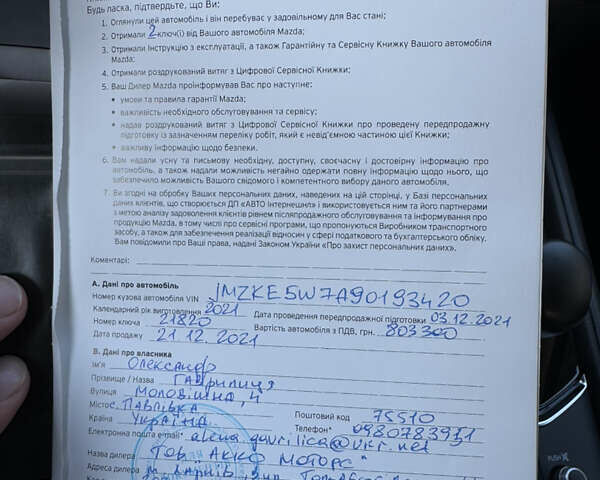 Будь ласка, підтвердьте, що Ви:
1. Оглянули цей автомобіль і він перебуває у задовільному для Вас стані;
2. Отримали 2 ключ(і) від Вашого автомобіля Mazda;
3. Отримали Інструкцію з експлуатації, а також Гарантійну та Сервісну Книжку Вашого автомобіля
Mazda;
4. Отримали роздрукований витяг з Цифрової Сервісної Книжки;
5. Ваш Дилер Mazda проінформував Вас про наступне:
• умови та правила гарантії Mazda;
• важливість необхідного обслуговування та сервісу;
• надав роздрукований витяг з Цифрової Сервісної Книжки про проведену передпродажну
підготовку із зазначенням переліку робіт, який є невід'ємною частиною цієї Книжки;
• важливу інформацію щодо безпеки.
6. Вам надали усну та письмову необхідну, доступну, своєчасну і достовірну інформацію про
автомобіль, а також надали можливість негайно одержати повну інформацію щодо нього, що
забезпечило можливість Вашого свідомого і компетентного вибору даного автомобіля.
7. Ви згодні на обробку Ваших персональних даних, наведених на цій сторінці, у Базі персональних
даних клієнтів, що створюється ДП «АВТО Інтернешнл» і використовується ним та його партнерами
з метою аналізу задоволення клієнтів рівнем післяпродажного обслуговування та інформування про
продукцію Mazda, в тому числі про сервісні програми, що пропонуються Виробником транспортного
засобу, а також для забезпечення реалізації відносин у сфері податкового та бухгалтерського обліку.
Вам повідомили про Ваші права, надані Законом України «Про захист персональних даних».
Коментарі:
А. Дані про автомобіль
Номер кузова автомобіля VIN JMZKE5W7A90193420
Календарний рік виготовлення 2021 Дата проведення передпродажної підготовки 03.12.2021
Номер ключа 21820 Вартість автомобіля з ПДВ, грн. 803300
Дата продажу 21.12.2021
В. Дані про власника
Ім'я Олександр
Прізвище / Назва Гаврилиця
Вулиця Молодіжна, 4
Місто с. Павлівка Поштовий код 75510
Країна Україна Телефон* 0980783951
Електронна пошта e-mail* alena.gavrilica@ukr.net
Назва дилера ТОВ "АККО МОТОРС"
Адреса дилера м. Харків,
PUSH